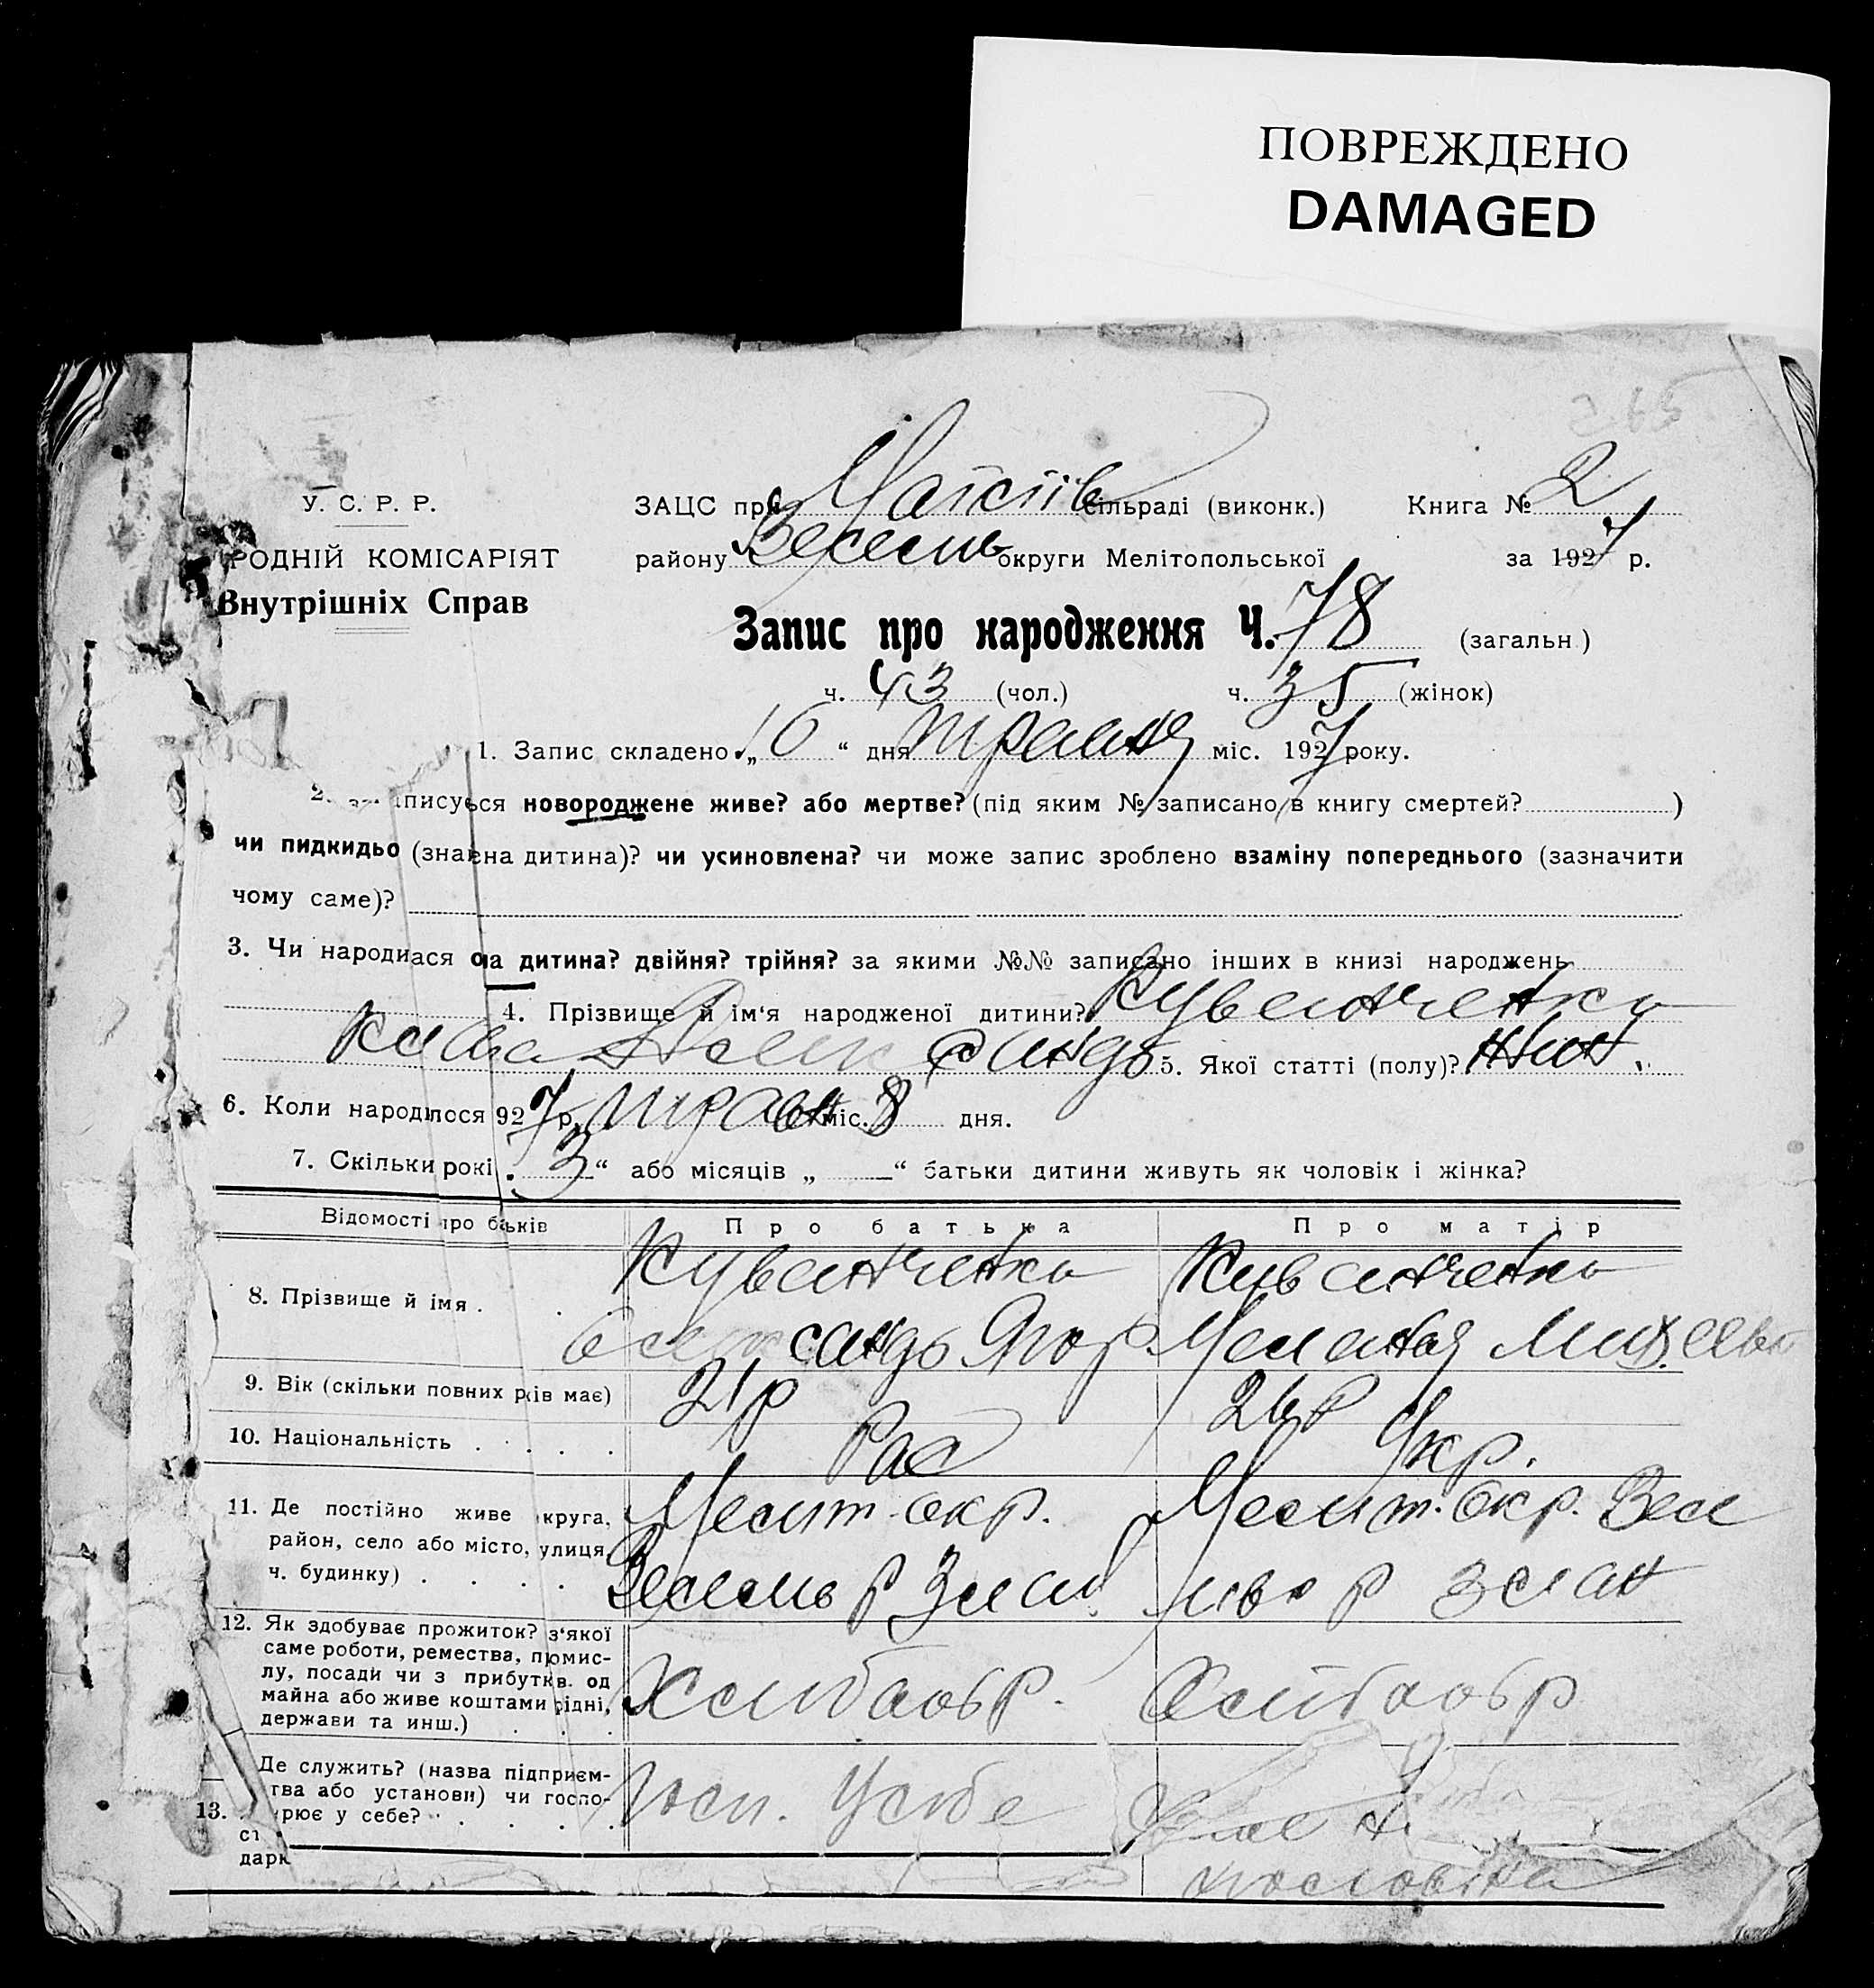 ПОВРЕЖДЕНО
DAMAGED
365
У. С. Р. Р.
ЗАЦС при сільраді (виконк.) Книга № 2
РОДНІЙ КОМІСАРІЯТ
району Веселів округи Мелітопольської за 1927 р.
Внутрішніх Справ
Запис про народження Ч. 78 (загальн.)
ч. 43 (чол.) ч. 35 (жінок)
1. Запис складено „10“ дня травня міс. 1927 року.
2. записується новороджене живе? або мертве? (під яким № записано в книгу смертей? )
чи пидкидьо (знайдена дитина)? чи усиновлена? чи може запис зроблено взаміну попереднього (зазначити
чому саме)?
3. Чи народилася одна дитина? двійня? трійня? за якими №№ записано інших в книзі народжень
4. Прізвище й ім'я народженої дитини? Куванченко
5. Якої статті (полу)? жін.
6. Коли народилося 927 р. трав міс. 8 дня.
7. Скільки років „3“ або місяців „—“ батьки дитини живуть як чоловік і жінка?
Відомості про батьків Про батька Про матір
8. Прізвище й імя . Куванченко Куванченко
Мелания
9. Вік (скільки повних років має) 21р 26 р
10. Національність . . . . . Рос Укр.
11. Де постійно живе округа, район, село або місто, улиця, ч. будинку) . . . . Мелит. окр. Мелит. окр. Весе
12. Як здобуває прожиток? з'якої саме роботи, ремества, промислу, посади чи з прибутків од майна або живе коштами рідні, держави та инш.) . . . Хлибаобр. Хлибаобр
13. Де служить? (назва підприємства або установи) чи господарює у себе? . . . . Хосп. Усебе